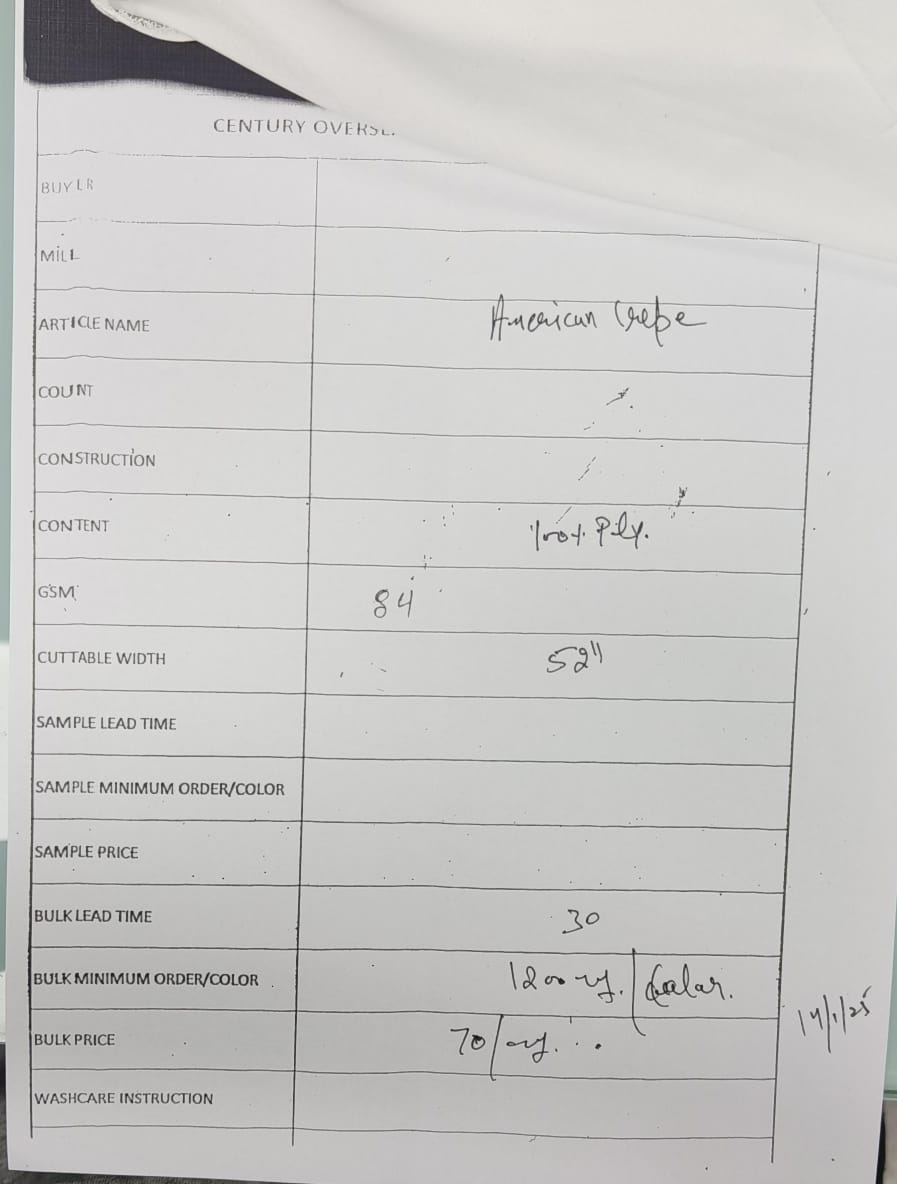 CENTURY OVERSE.
BUYER
MILL
ARTICLE NAME American Crepe
COUNT
CONSTRUCTION
CONTENT 100% Poly.
GSM 84
CUTTABLE WIDTH 52"
SAMPLE LEAD TIME
SAMPLE MINIMUM ORDER/COLOR
SAMPLE PRICE
BULK LEAD TIME 30
BULK MINIMUM ORDER/COLOR 1200
BULK PRICE 70/
14/1/25
WASHCARE INSTRUCTION